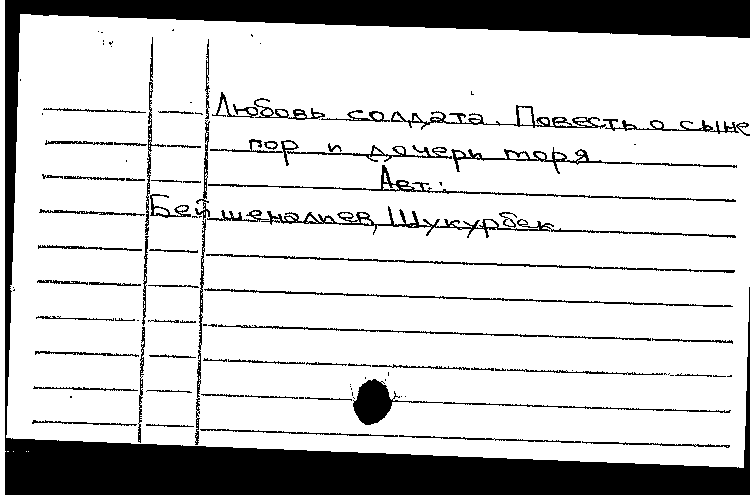 Любовь солдата. Повесть о сыне
гор и дочери моря
Авт.:
Бейшеналиев, Шукурбек